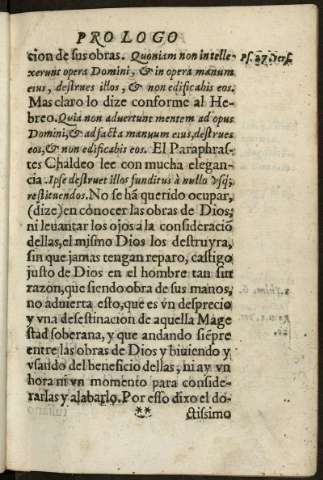 PROLOGO
cion de sus obras. Quoniam non intelle-
xerunt opera Domini, & in opera manum
eius, destrues illos, & non edificabis eos.
Mas claro lo dize conforme al He-
breo. Quia non aduertunt mentem ad opus
Domini, & ad facta manuum eius, destrues
eos, & non edificabis eos. El Paraphras-
tes Chaldeo lee con mucha elegan-
cia. Ipse destruet illos funditus à nullo vsq;
restituendos. No se há querido ocupar,
(dize) en cónocer las obras de Dios,
ni leuantar los ojos a la consideració
dellas, el mismo Dios los destruyra,
sin que jamas tengan reparo, castigo
justo de Dios en el hombre tan sin
razon, que siendo obra de sus manos,
no aduierta esto, que es vn desprecio
y vna desestinacion de aquella Mage
stad soberana, y que andando siépre
entre las obras de Dios y biuiendo y
vsando del beneficio dellas, ni ay vn
hora ni vn momento para conside-
rarlas y alabarlo. Por esso dixo el do-
** ctissimo
Ps. 27. vers.